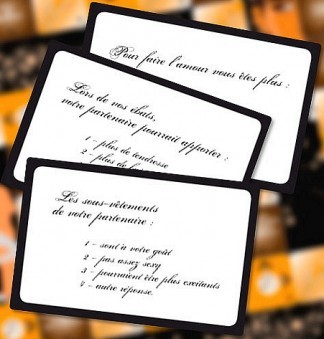 Pour faire l'amour vous êtes plus :
Lors de vos ébats,
votre partenaire pourrait apporter :
1 - plus de tendresse
2 - plus de
Les sous-vêtements
de votre partenaire :
1 - sont à votre goût
2 - pas assez sexy
3 - pourraient être plus excitants
4 - autre réponse.